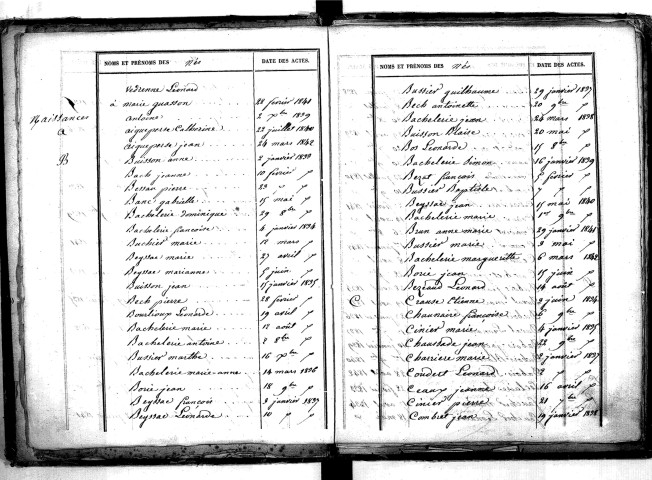 NOMS ET PRÉNOMS DES Nés DATE DES ACTES.
Vedrenne Léonard
à marie quasson 28 février 1841
Naissances antoine 2 xbre 1839
a aigueperse Catherine 22 juillet 1840
aigueperse jean 24 mars 1842
B Buisson anne 2 janvier 1833
Bach jeanne 10 février "
Bessac pierre 23 " "
Banc gabrielle 15 mai "
Bachelerie dominique 29 8bre "
Bachelerie françoise 4 janvier 1834
Buchier marie 12 mars "
Beyssac marie 27 avril "
Beyssac marianne 5 juin "
Buisson jean 15 janvier 1835
Bech pierre 28 février "
Bourlioux Léonarde 19 avril "
Bachelerie marie 12 août "
Bachelerie antoine 2 8bre "
Bussier marthe 16 xbre "
Bachelerie marie anne 14 mars 1836
Borie jean 18 9bre "
Beyssac françois 2 janvier 1837
Beyssac Léonarde 10 " "
NOMS ET PRÉNOMS DES Nés DATE DES ACTES.
Bussier guilhaume 29 janvier 1837
Bech antoinette 20 9bre "
Bachelerie jean 24 mars 1838
Buisson Blaise 20 mai "
Bos Léonarde 15 8bre "
Bachelerie Simon 16 janvier 1839
Bezat françois 5 février "
Bussier Baptiste 7 "
Beyssac jean 15 mai 1840
Bachelerie marie 1er 9bre "
Brun anne marie 29 janvier 1841
Bussier marie 2 mai "
Bachelerie marguerite 6 mars 1842
Borie jean 15 juin "
Bezeaud Léonard 14 août "
C Crause Etienne 2 juin 1834
Chaunaire françoise 6 9bre "
Cinier marie 4 janvier 1835
Chaussade jean 22 9bre "
Charriere marie 2 janvier 1837
Coudert Léonard 2 " "
Ceaux jeanne 16 avril "
Cinier pierre 21 "
Combret jean 19 janvier 1838